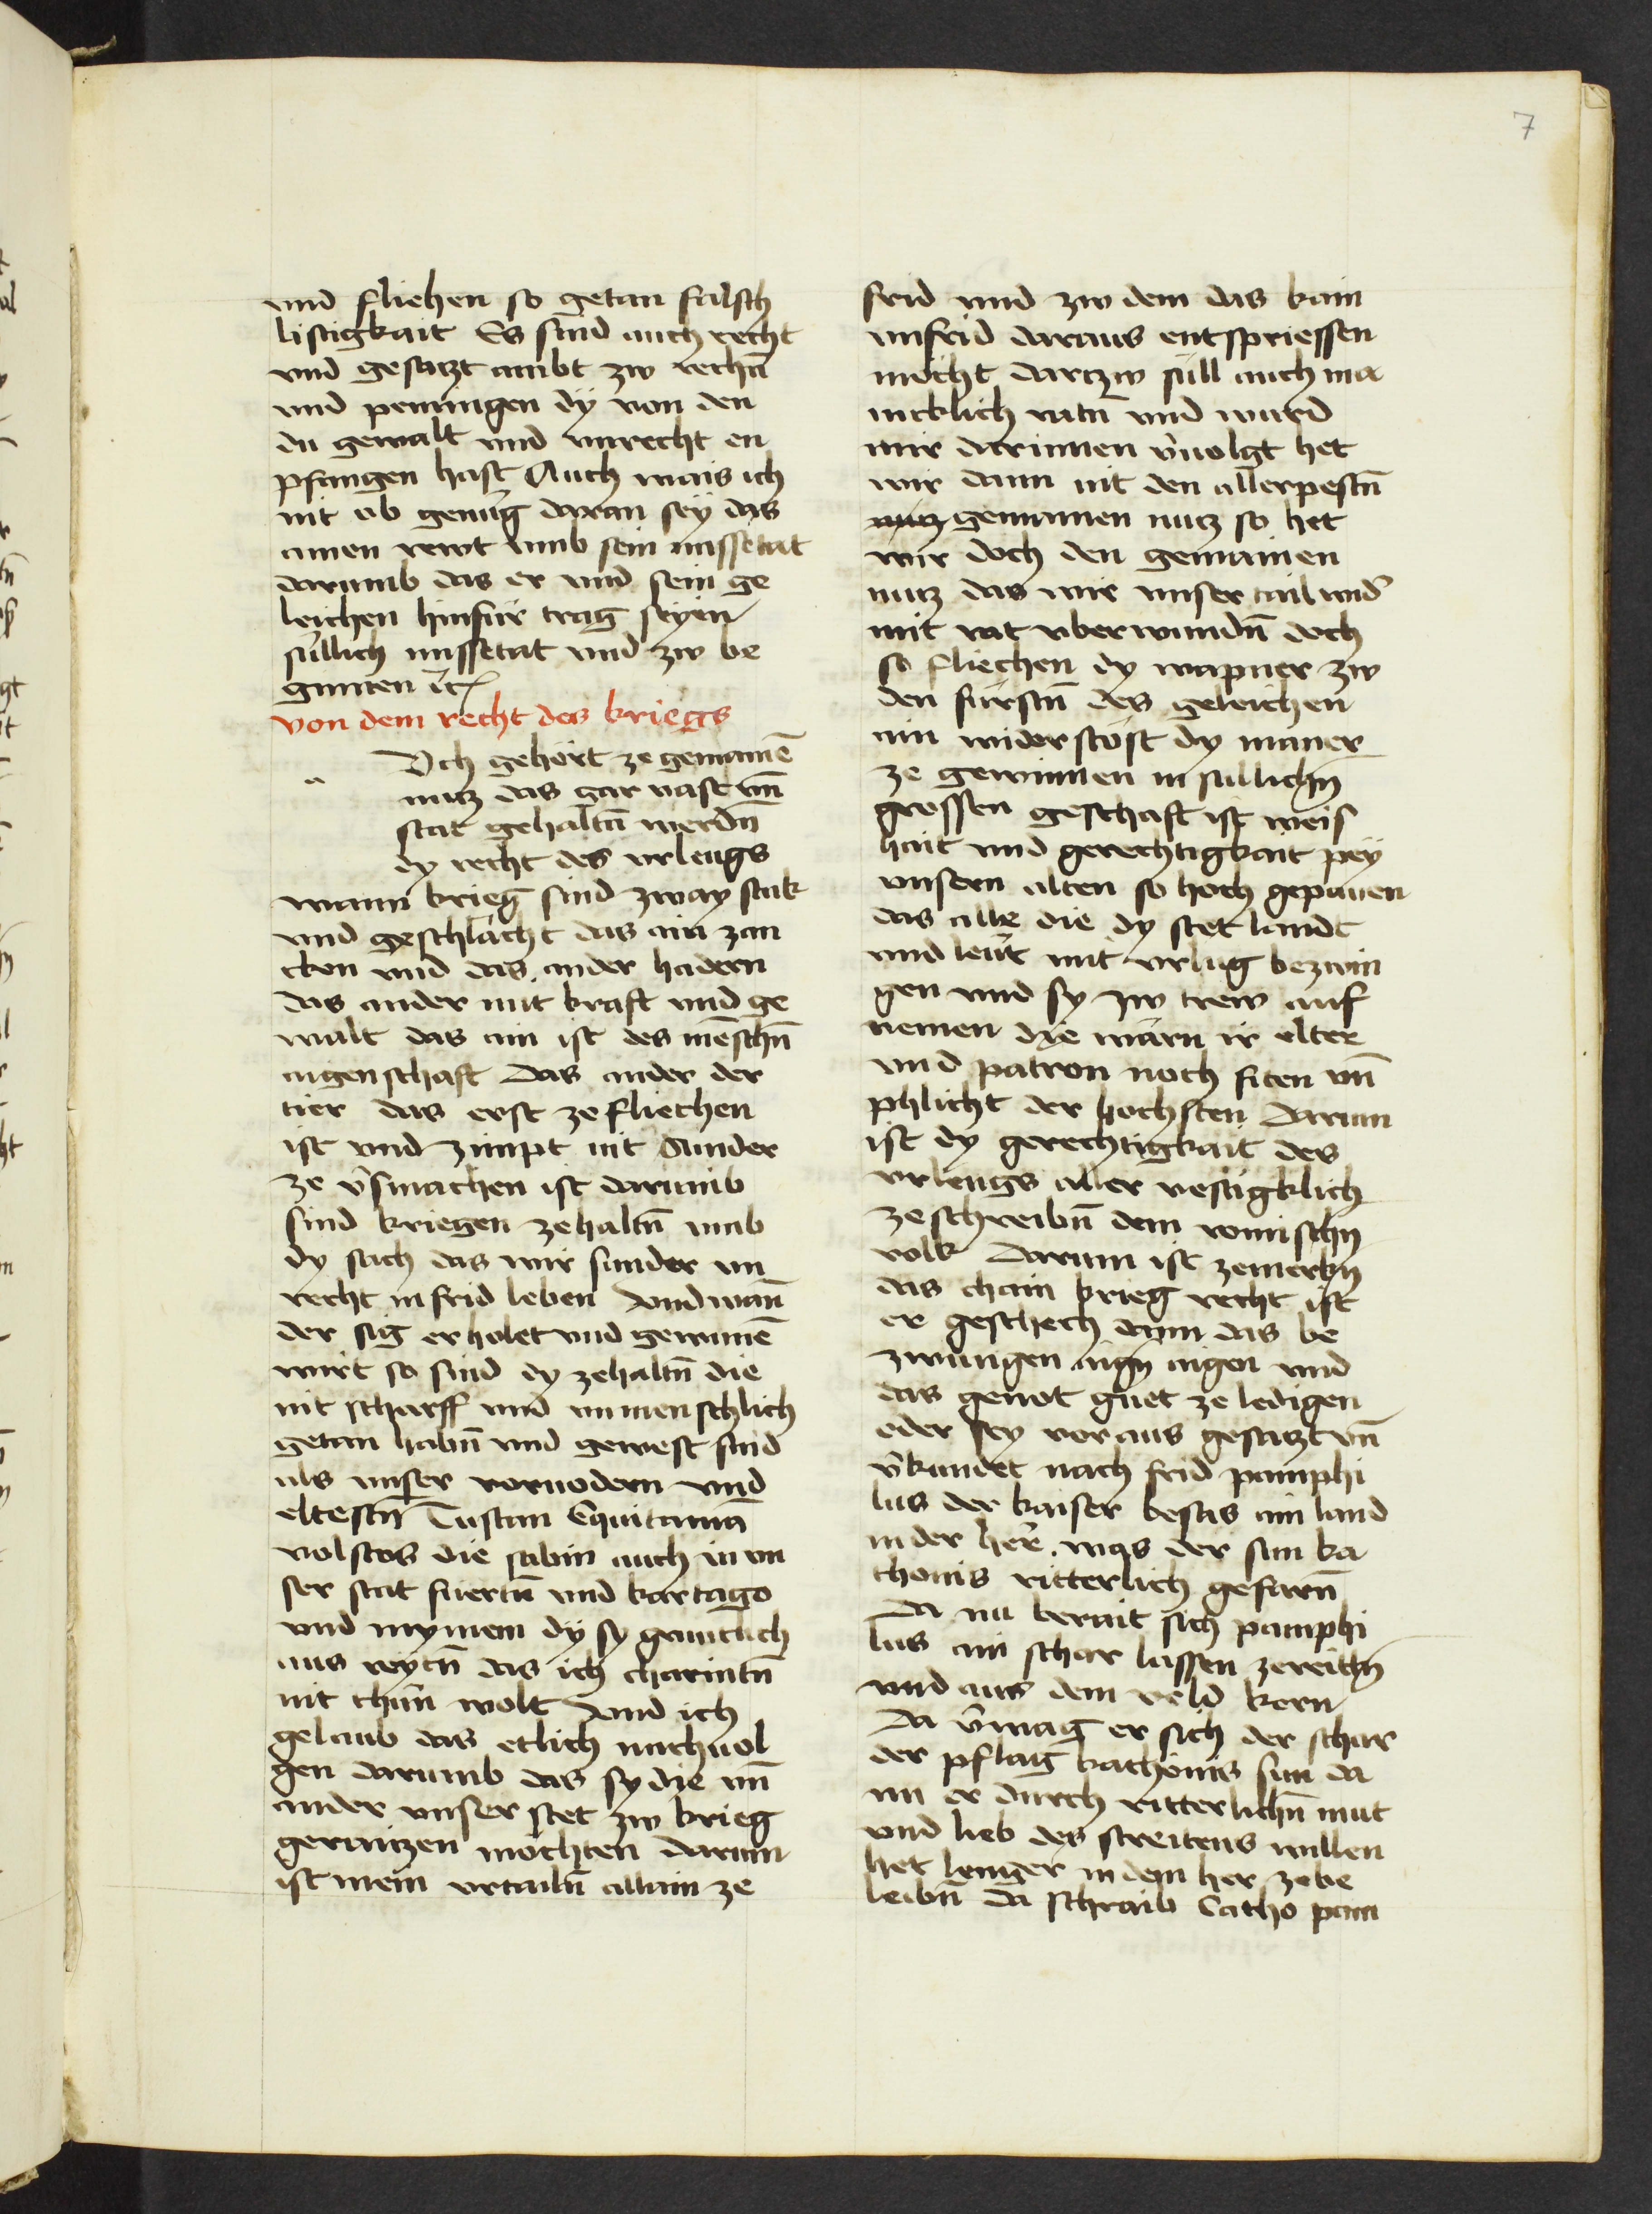 7
vnd fliehen so getan falsch
listigkait Es sind auch recht
vnd gesatzt ambt zw rechn̄
vnd peningen dÿ von den
du gewalt vnd vnrecht en
pfangen hast Auch wais ich
nit ob genug daran sey das
ainen rewt vmb sein missetat
darumb das er vnd sein ge
leichen hinfür trag seyen
süllich missetat vnd zw be
ginnen ꝛc
von dem recht des kriegs
a Vch gehört ze gemainē
nutz das gar vast vn̄
stat gehaltn̄ werdn̄
dy recht des vrleugs
wann krieg sind zway stuk
und geschlächt das ain zan
cken vnd das ander hadern
das ander mit kraft vnd ge
walt das ain ist des mēschn̄
aigenschaft Das ander der
tier das erst ze fliechen
ist vnd zimpt nit Ander
ze v̄smachen ist darumb
sind kriegen zehaltn̄ vmb
dy sach das wir sunder vn
recht in frid leben Vnd wan̄
der sig erholet vnd gewunnē
wirt so sind dy zehaltn̄ die
nit scharff vnd vnmenschlich
getan habn̄ vnd gewest sind
als vnser voruodern vnd
eltestn̄ Tustan Equitania
volstos die sabin auch in vn
ser stat fuertn̄ vnd kartago
vnd mymem dÿ sy gentzlich
aus reytn̄ das ich charintn̄
nit thūn wolt Vnd ich
gelaub das etlich nachuol
gen darumb das sy die vn̄
ander vnser stet zw krieg
geraitzen möchten darum
ist mein vrtailn̄ allain ze
frid vnd zw dem das kain
vnfrid daraus entspriessen
möcht dartzw süll auch ma
nicklich ratn̄ vnd wurd
mir darinnen v̄uolgt het
wir dann nit den allerpestn̄
nutz gemainen nutz so het
wir doch den gemainen
nutz das wir vnser tail vnd̄
mit rat vberwundn̄ doch
so fliechen dy wapner zw
den fürstn̄ des geleichen
ain widerstöst dy mauer
ze gewinnen in sülichn̄
grossen geschaft ist weis
hait vnd gerechtigkait pey
vnsern alten so hoch gepauen
das alle die dy stet landt
vnd leut mit vrlug bezwin
gen vnd sy zw trew auf
nemen dye warn ir elter
vnd patron noch siten vn̄
phlicht der hochsten Darum
ist dy gerechtigkait des
vrleugs aller vestigklich
zeschreibn̄ dem romischn̄
volk Darum ist zemerkn̄
das chain krieg recht ist
er geschech dann das be
zwungen aign̄ aigen vnd
das genot guet ze ledigen
oder sey voraus gesatzt vn̄
v̄kundet nach frid pamphi
lus der kaiser besas ain land
in der her̄ was der sun ka
thonis ritterlich gefarn̄
Da nu berait sich pamphi
lus ain schar lassen zereitn̄
vnd aus dem veld kern
Da v̄wag er sich der schar
der pflag kathonis sun da
nu er durch ritterlichn̄ mut
vnd lieb des streitens willen
het lenger in dem her zebe
leibn̄ Da schraib Catho pam